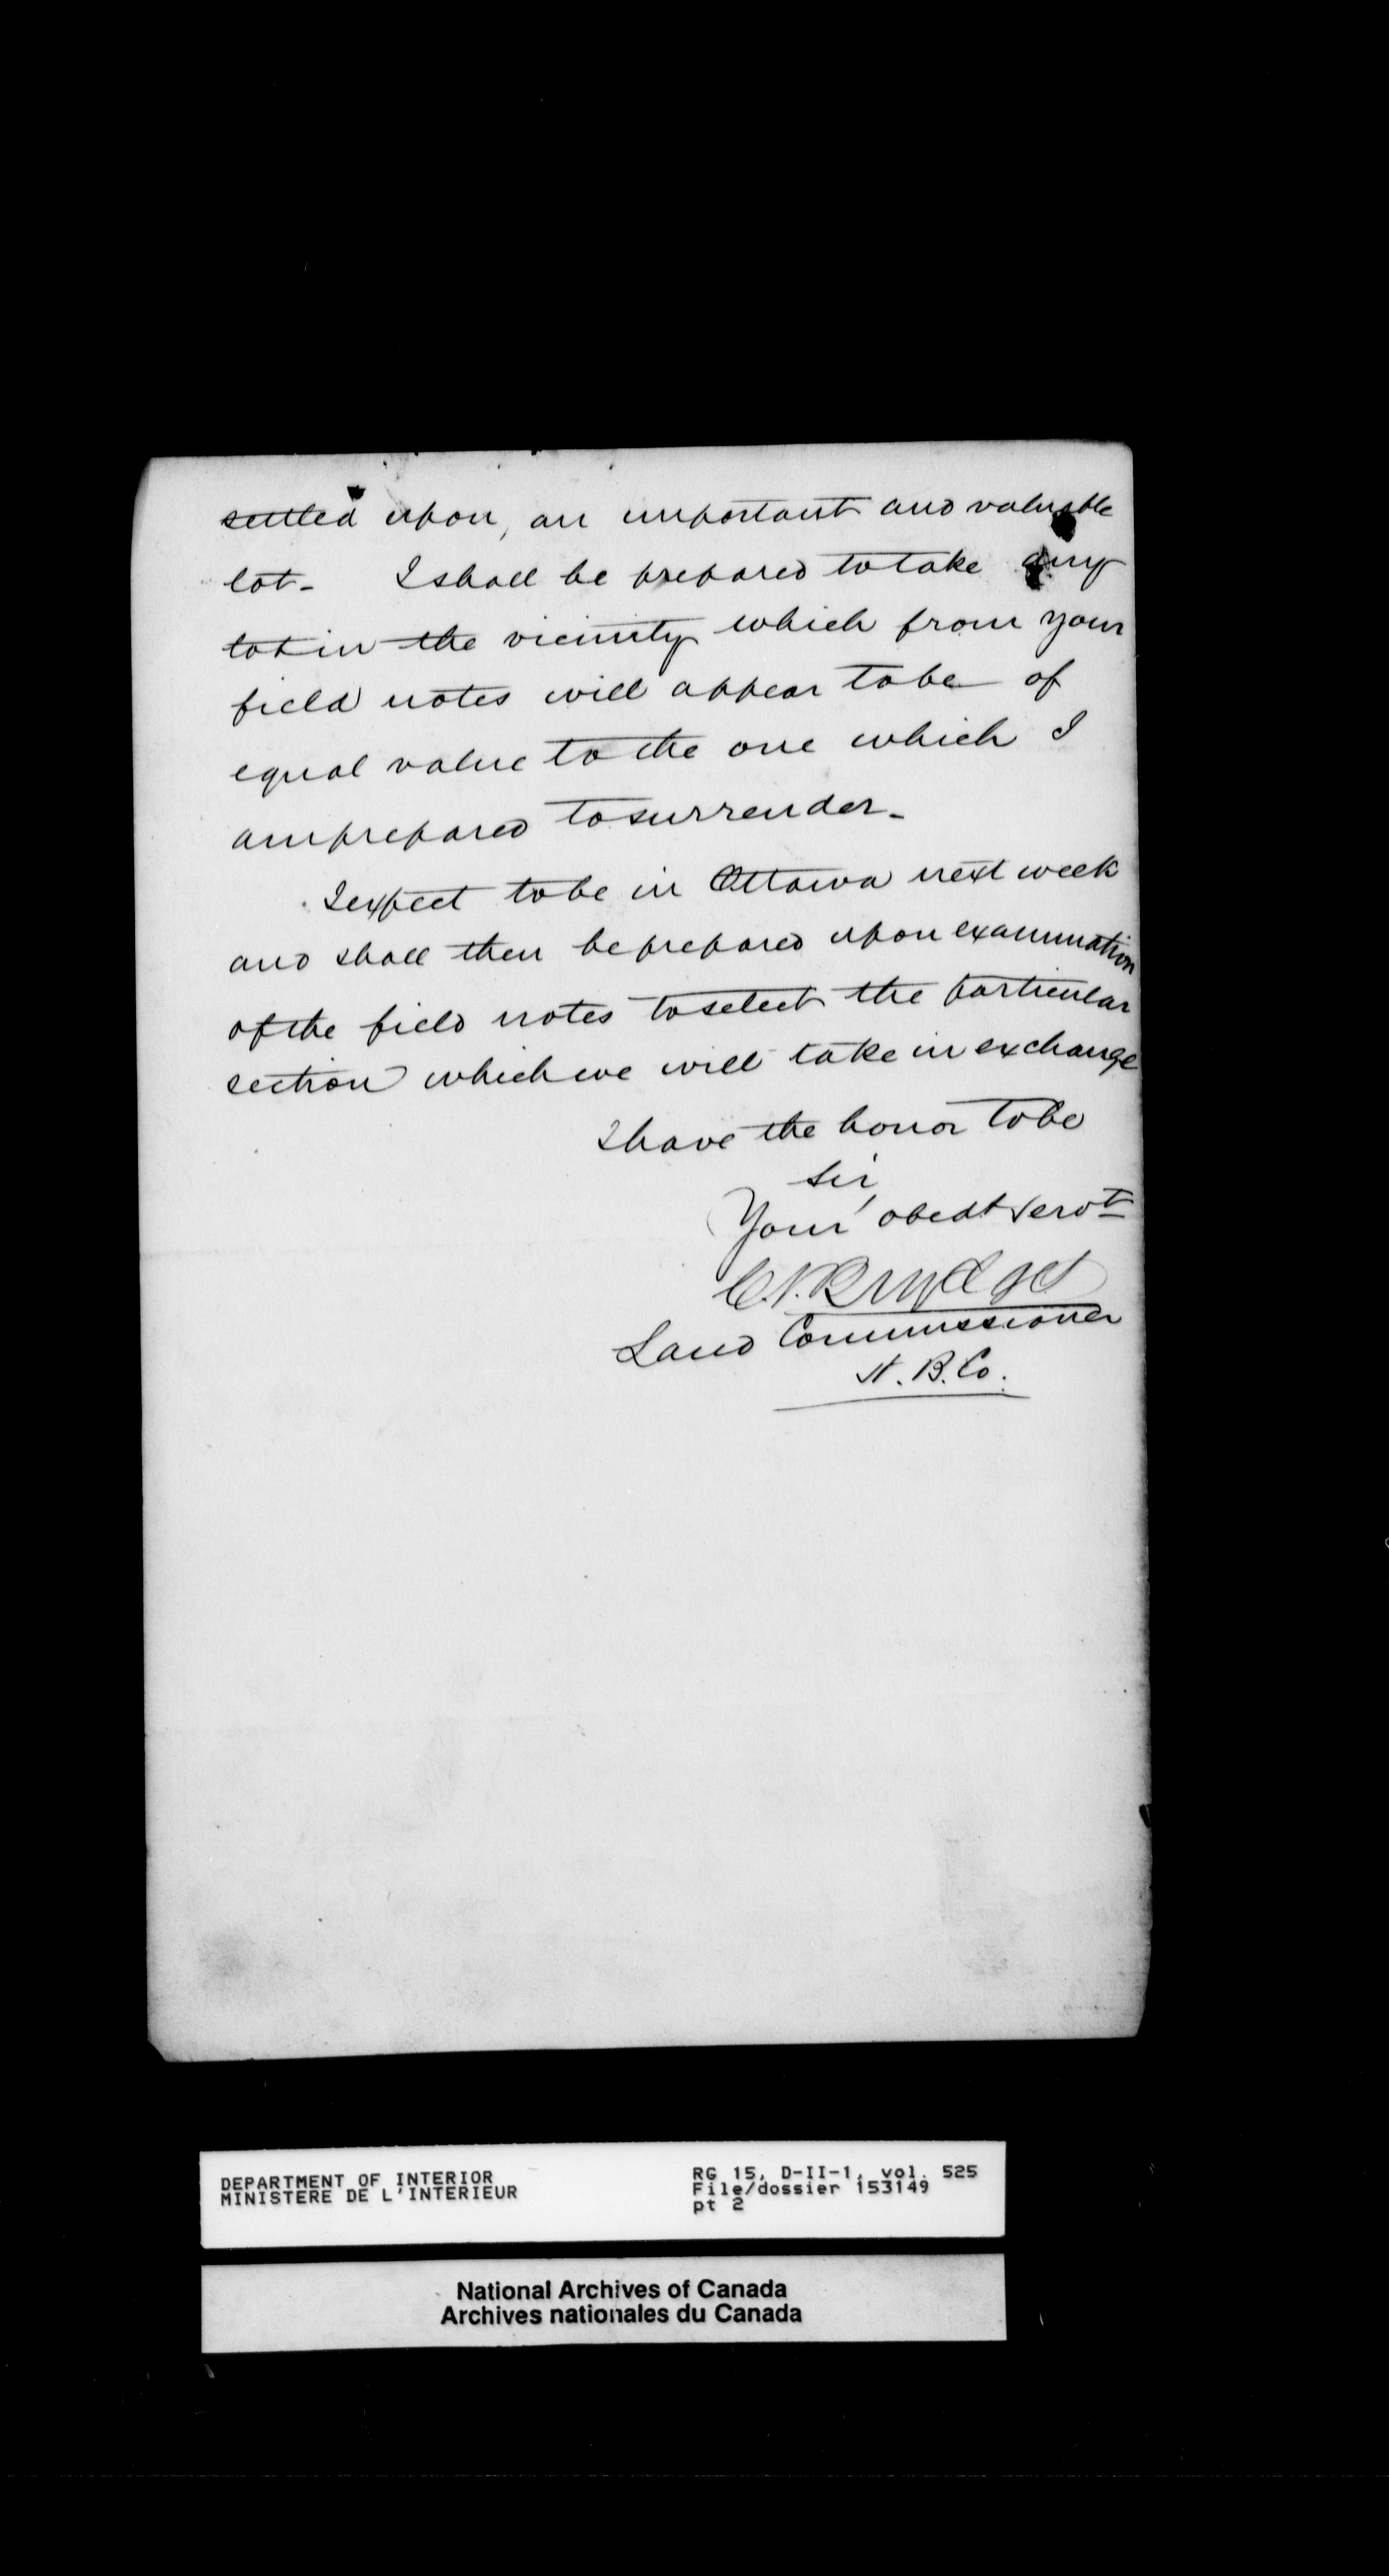 settled upon, an important and valuable
lot - I shall be prepared to take any
lot in the vicinity which from your
field notes will appear to be of
equal value to the one which I
am prepared to surrender -
I expect to be in Ottawa next week
and shall then be prepared upon examination
of the field notes to select the particular
section which we will take in exchange
I have the honor to be
Sir,
Your obedt Servt
C.J. Brydges
Land Commissioner
H. B. Co.
DEPARTMENT OF INTERIOR
MINISTERE DE L'INTERIEUR
RG 15, D-II-1, vol. 525
File/dossier 153149
pt 2
National Archives of Canada
Archives nationales du Canada